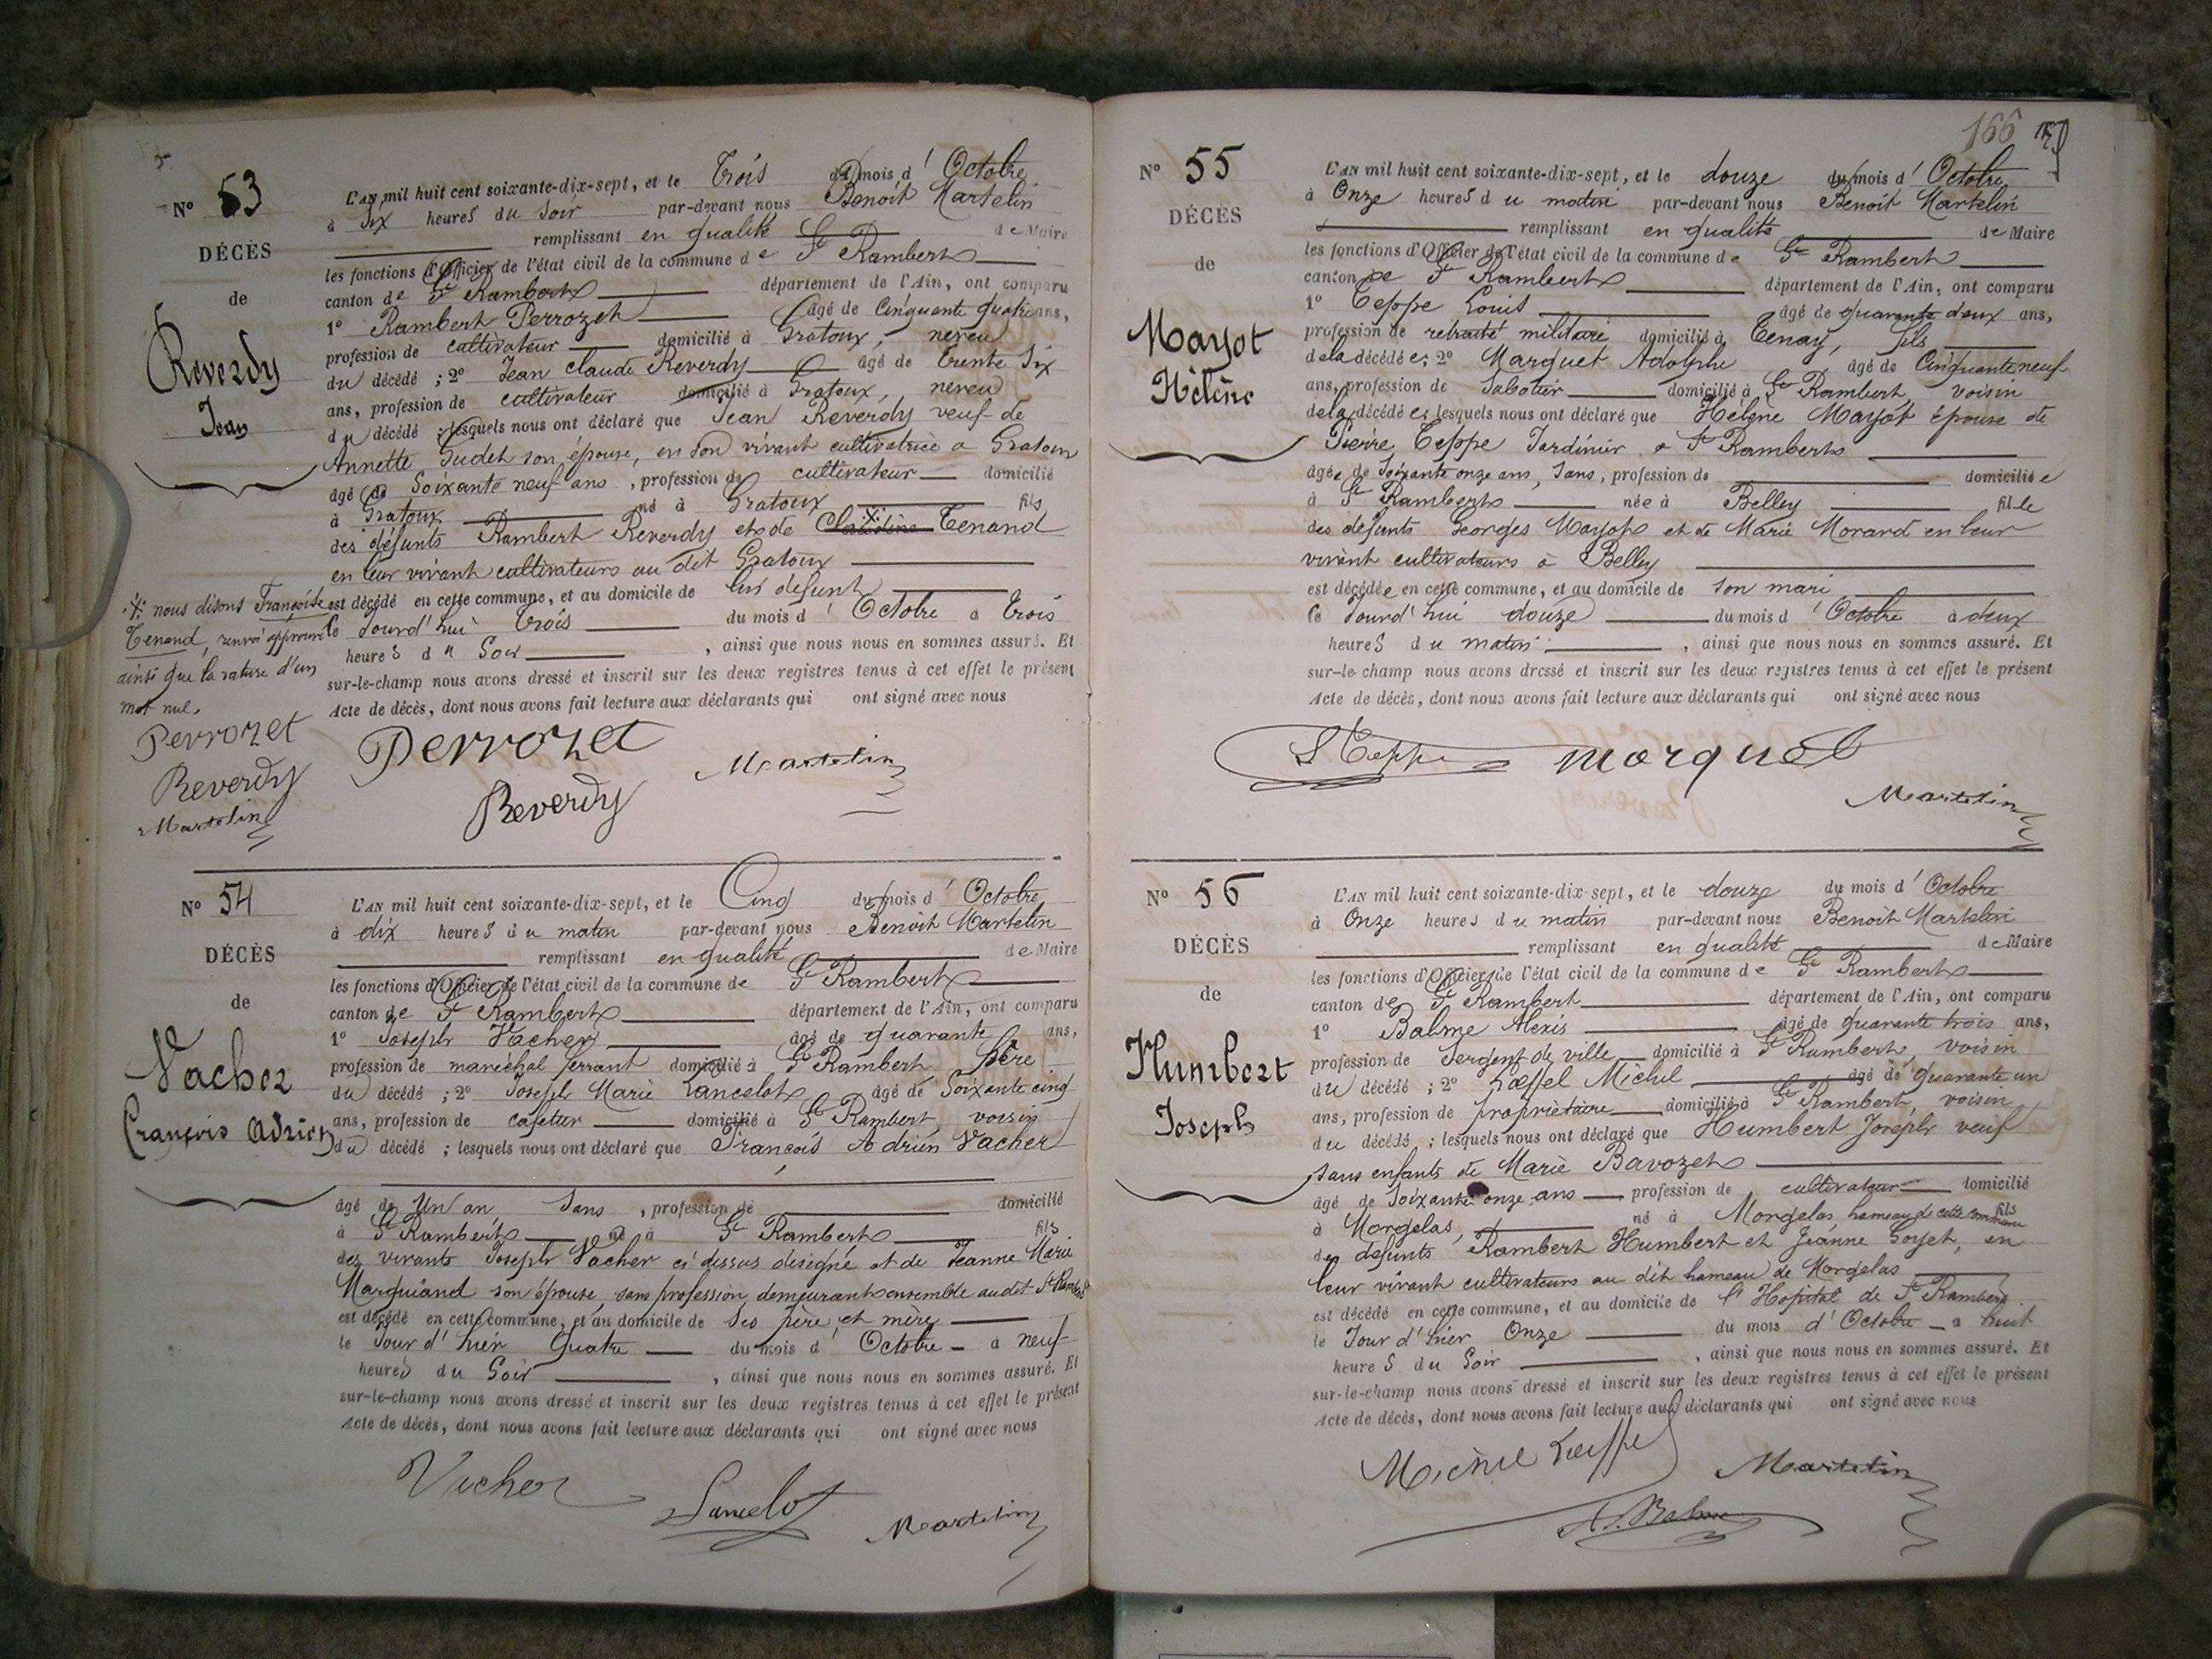 N° 53
DÉCÈS
de
Reverdy
Jean
L'AN mil huit cent soixante-dix-sept, et le Trois du mois d' Octobre
à Six heures du Soir par-devant nous Benoit Martelin
remplissant en qualité de Maire
les fonctions d'Officier de l'état civil de la commune de St Rambert
canton de St Rambert département de l'Ain, ont comparu
1° Rambert Perrozet âgé de Cinquante quatre ans,
profession de cultivateur domicilié à Gratoux, neveu
du décédé ; 2° Jean Claude Reverdy âgé de trente Six
ans, profession de cultivateur domicilié à Gratoux, neveu
du décédé ; lesquels nous ont déclaré que Jean Reverdy veuf de
Annette Gudet son épouse, en son vivant cultivatrice a Gratoux
âgé de Soixante neuf ans, profession de cultivateur domicilié
à Gratoux né à Gratoux fils
des défunts Rambert Reverdy et de Claudine Tenand
en leur vivant cultivateurs au dit Gratoux
est décédé en cette commune, et au domicile de lui defunt
le Jourd'hui trois du mois d' Octobre à trois
heures du Soir, ainsi que nous nous en sommes assuré. Et
sur-le-champ nous avons dressé et inscrit sur les deux registres tenus à cet effet le présent
Acte de décès, dont nous avons fait lecture aux déclarants qui ont signé avec nous
nous disons Françoise
Tenand, renvoi approuvé
ainsi que la rature d'un
mot nul.
Perrozet
Reverdy
Martelin
Perrozet
Reverdy
Martelin
N° 54
DÉCÈS
de
Vacher
François Adrien
L'AN mil huit cent soixante-dix-sept, et le Cinq du mois d' Octobre
à dix heures du matin par-devant nous Benoit Martelin
remplissant en qualité de Maire
les fonctions d'Officier de l'état civil de la commune de St Rambert
canton de St Rambert département de l'Ain, ont comparu
1° Joseph Vacher âgé de quarante ans,
profession de maréchal ferrant domicilié à St Rambert père
du décédé ; 2° Joseph Marie Lancelot âgé de Soixante cinq
ans, profession de cafetier domicilié à St Rambert, voisin
du décédé ; lesquels nous ont déclaré que François Adrien Vacher
âgé de Un an Sans, profession de domicilié
à St Rambert né à St Rambert fils
des vivants Joseph Vacher ci dessus désigné et de Jeanne Marie
Marquiand son épouse, sans profession demeurant ensemble audit St Rambert
est décédé en cette commune, et au domicile de Ses père et mère
le Jour d'hier Quatre du mois d' Octobre à neuf
heures du Soir, ainsi que nous nous en sommes assuré. Et
sur-le-champ nous avons dressé et inscrit sur les deux registres tenus à cet effet le présent
Acte de décès, dont nous avons fait lecture aux déclarants qui ont signé avec nous
Vacher
Lancelot
Martelin
166
N° 55
DÉCÈS
de
Mayot
Hélène
L'AN mil huit cent soixante-dix-sept, et le douze du mois d' Octobre
à Onze heures du matin par-devant nous Benoit Martelin
remplissant en qualité de Maire
les fonctions d'Officier de l'état civil de la commune de St Rambert
canton de St Rambert département de l'Ain, ont comparu
1° Teppe Louis âgé de quarante deux ans,
profession de retraité militaire domicilié à Tenay, fils
de la décédée ; 2° Marquet Adolphe âgé de Cinquante neuf
ans, profession de Sabotier domicilié à St Rambert, voisin
de la décédée ; lesquels nous ont déclaré que Hélène Mayot épouse de
Pierre Teppe Jardinier a St Rambert
âgée de Soixante onze ans, Sans, profession de domiciliée
à St Rambert née à Belley fille
des défunts Georges Mayot et de Marie Morard en leur
vivant cultivateurs à Belley
est décédée en cette commune, et au domicile de son mari
le Jourd'hui douze du mois d' Octobre à deux
heures du matin, ainsi que nous nous en sommes assuré. Et
sur-le-champ nous avons dressé et inscrit sur les deux registres tenus à cet effet le présent
Acte de décès, dont nous avons fait lecture aux déclarants qui ont signé avec nous
L Teppe
Marquet
Martelin
N° 56
DÉCÈS
de
Humbert
Joseph
L'AN mil huit cent soixante-dix-sept, et le douze du mois d' Octobre
à Onze heures du matin par-devant nous Benoit Martelin
remplissant en qualité de Maire
les fonctions d'Officier de l'état civil de la commune de St Rambert
canton de St Rambert département de l'Ain, ont comparu
1° Balme Alexis âgé de quarante trois ans,
profession de Sergent de ville domicilié à St Rambert, voisin
du décédé ; 2° Lœffel Michel âgé de quarante un
ans, profession de propriétaire domicilié à St Rambert, voisin
du décédé ; lesquels nous ont déclaré que Humbert Joseph veuf
sans enfants de Marie Bavozet
âgé de Soixante onze ans profession de cultivateur domicilié
à Morgelas, né à Morgelas, hameau de cette commune fils
des défunts Rambert Humbert et Jeanne Goyet, en
leur vivant cultivateurs au dit hameau de Morgelas
est décédé en cette commune, et au domicile de l'Hopital de St Rambert
le Jour d'hier Onze du mois d'Octobre à huit
heures du Soir, ainsi que nous nous en sommes assuré. Et
sur-le-champ nous avons dressé et inscrit sur les deux registres tenus à cet effet le présent
Acte de décès, dont nous avons fait lecture aux déclarants qui ont signé avec nous
Michel Lœffel
Martelin
A. Balme